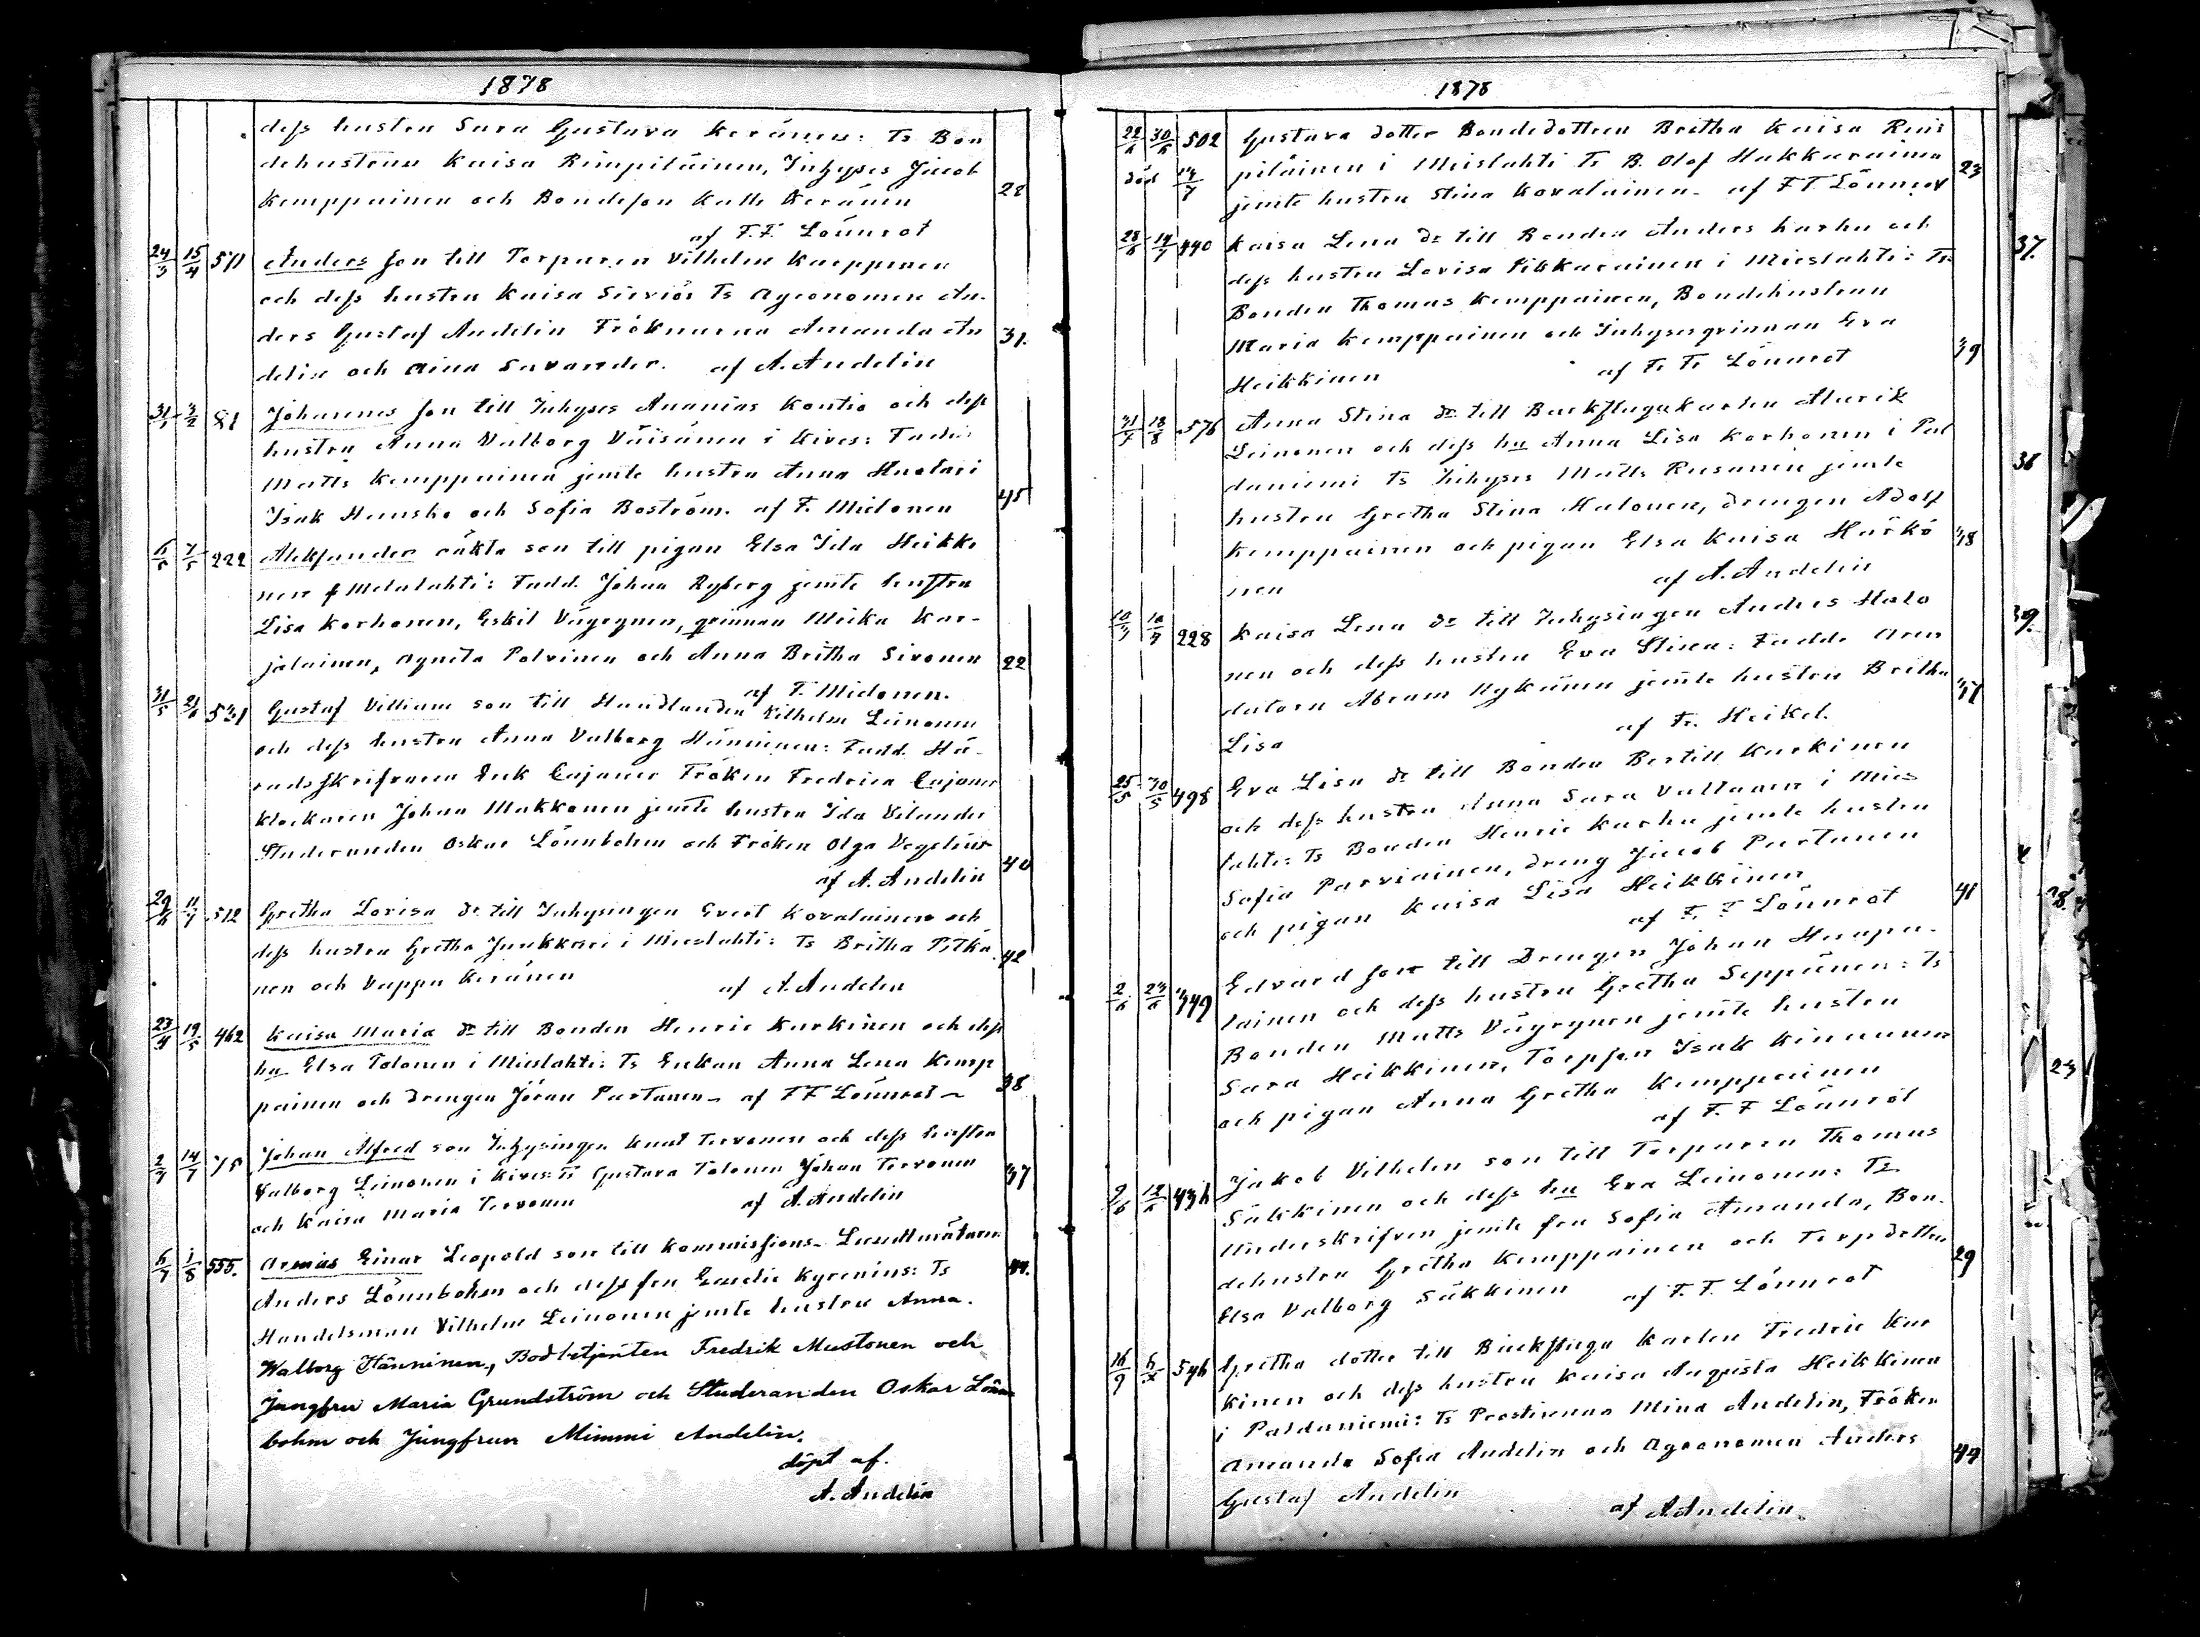 1878
dess hustru Sara Gustava Keränen: Ts Bon
dehustrun Kaisa Rimpiläinen, Inhyses Jacob
Kemppainen och Bondeson Kalle Keränen 28
af F.F. Lönnrot
24/3 15/4 511 Anders son till Torparen Vilhelm Karppinen
och dess hustru Kaisa Sirviö: Ts Agronomen An-
ders Gustaf Andelin Fröknarna Amanda An 31.
delin och Aina Savander. af A. Andelin
81 Johannes son till Inhyses Ananias Kontio och dess
hustru Anna Valborg Väisänen i Kives: Fadd:
Matts Kemppainen jemte hustru Anna Huotari
Isak Hansko och Sofia Boström. af F. Midonen 45
222 Aleksander oäkta son till pigan Elsa Ida Heikki
nen Melalahti: Fadd. Johan Ryberg jemte hustru
Lisa Korhonen, Eskil Väyrynen, qvinnan Meika Kar-
jalainen, Agneta Polvinen och Anna Britha Sivonen 22
af F. Midonen.
31/5 531 Gustaf Villiam son till Handlanden Vilhelm Leinonen
och dess hustru Anna Valborg Hänninen: Fadd. Hä-
radsskrifvaren Erik Cajaner Fröken Fredrica Cajaner
Klockaren Johan Mukkonen jemte hustru Ida Vilander
Studeranden Oskar Lönnbohm och Fröken Olga Vegelius 40
af A. Andelin
29/6 11/7 512 Gretha Lovisa dr till Inhysingen Evert Kovalainen och
dess hustru Gretha Juukkari i Mieslahti: Ts Britha Pitkä 42
nen och Vappu Keränen af A. Andelin
19/5 462 Kaisa Maria dr till Bonden Henric Karkinen och dess
hu Elsa Tolonen i Mieslahti: Ts Enkan Anna Lena Kemp
painen och drengen Jöran Partanen af F F Lönnrot 38
2/7 14/7 75 Johan Alfred son Inhysingen Knut Tervonen och dess hustru
Valborg Leinonen i Kives: Ts Gustava Tolonen Johan Tervonen 37
och Kaisa Maria Tervonen af A. Andelin
6/7 1/8 555. Armas Einar Leopold son till Kommissions-Landtmätaren
Anders Lönnbohm och dess fru Kyrenius: Ts 44.
Handelsman Vilhelm Leinonen jemte hustru Anna.
Walborg Hänninen, Bodbetjenten Fredrik Mustonen och
Jungfru Maria Grundström och Studeranden Oskar Lönn
bohm och Jungfrun Mimmi Andelin.
döpt af.
A. Andelin
1878
22/6 30/6 502 Gustava dotter Bondedottren Britha Kaisa Rim
död 14/7 piläinen i Mieslahti Ts B. Olof Hakkarainen 23
jemte hustru Stina Kovalainen af F F Lönnrot
28/6 14/7 440 Kaisa Lena dr till Bonden Anders Karhu och 37.
dess hustru Lovisa Pikkarainen i Mieslahti: Ts
Bonden Thomas Kemppainen, Bondehustrun
Maria Kemppainen och Inhysesqvinnan Eva 39
Heikkinen af F. F. Lönnrot
18/8 576 Anna Stina dr till Backstugukarlen Alarik
Leinonen och dess hu Anna Lisa Korhonen i Pal 36
daniemi Ts Inhyses Matts Rusanen jemte
hustru Gretha Stina Halonen, drengen Adolf
Kemppainen och pigan Elsa Kaisa Härkö 38
nen af A. Andelin
228 Kaisa Lena dr till Inhysingen Anders Halo 39.
nen och dess hustru Eva Stina: Fadde Aren
datorn Abram Nykänen jemte hustru Britha 37
Lisa af F. Heikel.
25/5 30/5 498 Eva Lisa dr till Bonden Bertill Karkinen
och dess hustru Anna Sara Valtanen i Mies
lahti: Ts Bonden Henric Karhu jemte hustru
Sofia Parviainen, dreng Jacob Partanen
och pigan Kaisa Lisa Heikkinen 41
af F. F Lönnrot
2/6 23/6 349 Edvard son till Drengen Johan Haapa-
lainen och dess hustru Gretha Seppänen: Ts
Bonden Matts Väyrynen jemte hustru
Sara Heikkinen, Torpson Isak Kinnunen 23
och pigan Anna Gretha Kemppainen
af F. F Lönnrot
Jakob Vilhelm son till Torparen Thomas
Säkkinen och dess hu Eva Leinonen: Ts.
Underskrifven jemte fru Sofia Amanda, Bon-
dehustru Gretha Kemppainen och Torpdottren 29
Elsa Valborg Säkkinen af F. F. Lönnrot
546 Gretha dotter till Backstugu karlen Fredric Kar
kinen och dess hustru Kaisa Augusta Heikkinen
i Paldaniemi: Ts Prostinnan Mina Andelin, Fröken
Amanda Sofia Andelin och Agronomen Anders 49
Gustaf Andelin af A Andelin.